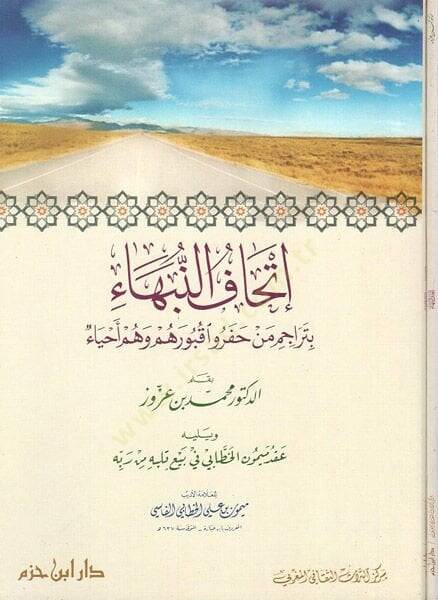 إتحاف النبهاء
بتراجم من حفروا قبورهم وهم أحياء
بقلم
الدكتور محمد بن عزوز
ويليه
عقد ميمون الخطابي في بيع قلبه من ربه
للعلامة الأديب
ميمون بن علي الخطابي الفاسي
المعروف بابن خبازة - المتوفى سنة ٦٣٧ هـ
مركز التراث الثقافي المغربي
دار ابن حزم